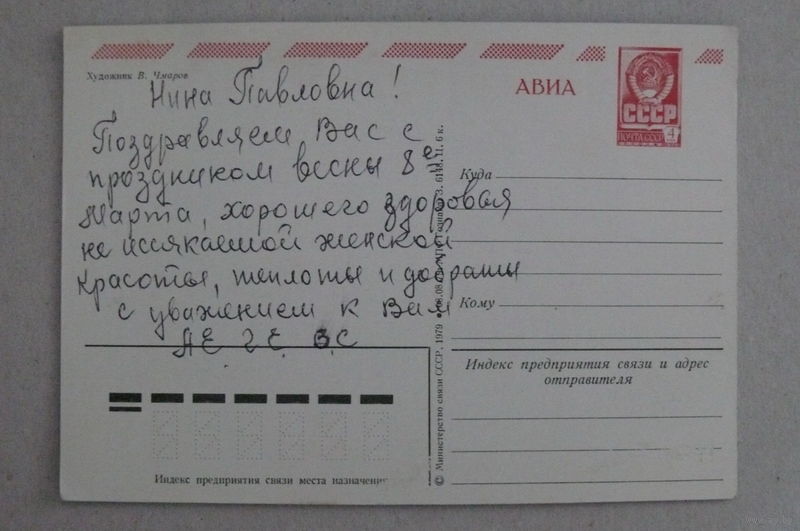 Художник В. Чмаров
АВИА
СССР
ПОЧТА СССР 4
Нина Павловна!
Поздравляем Вас с
праздником весны 8е
Марта, хорошего здоровая
не иссякаемой женской
красоты, теплоты и доброты
с уважением к Вам
АЕ ГЕ ВС
Куда
Кому
Индекс предприятия связи и адрес
отправителя
Индекс предприятия связи места назначения
© Министерство связи СССР, 1979